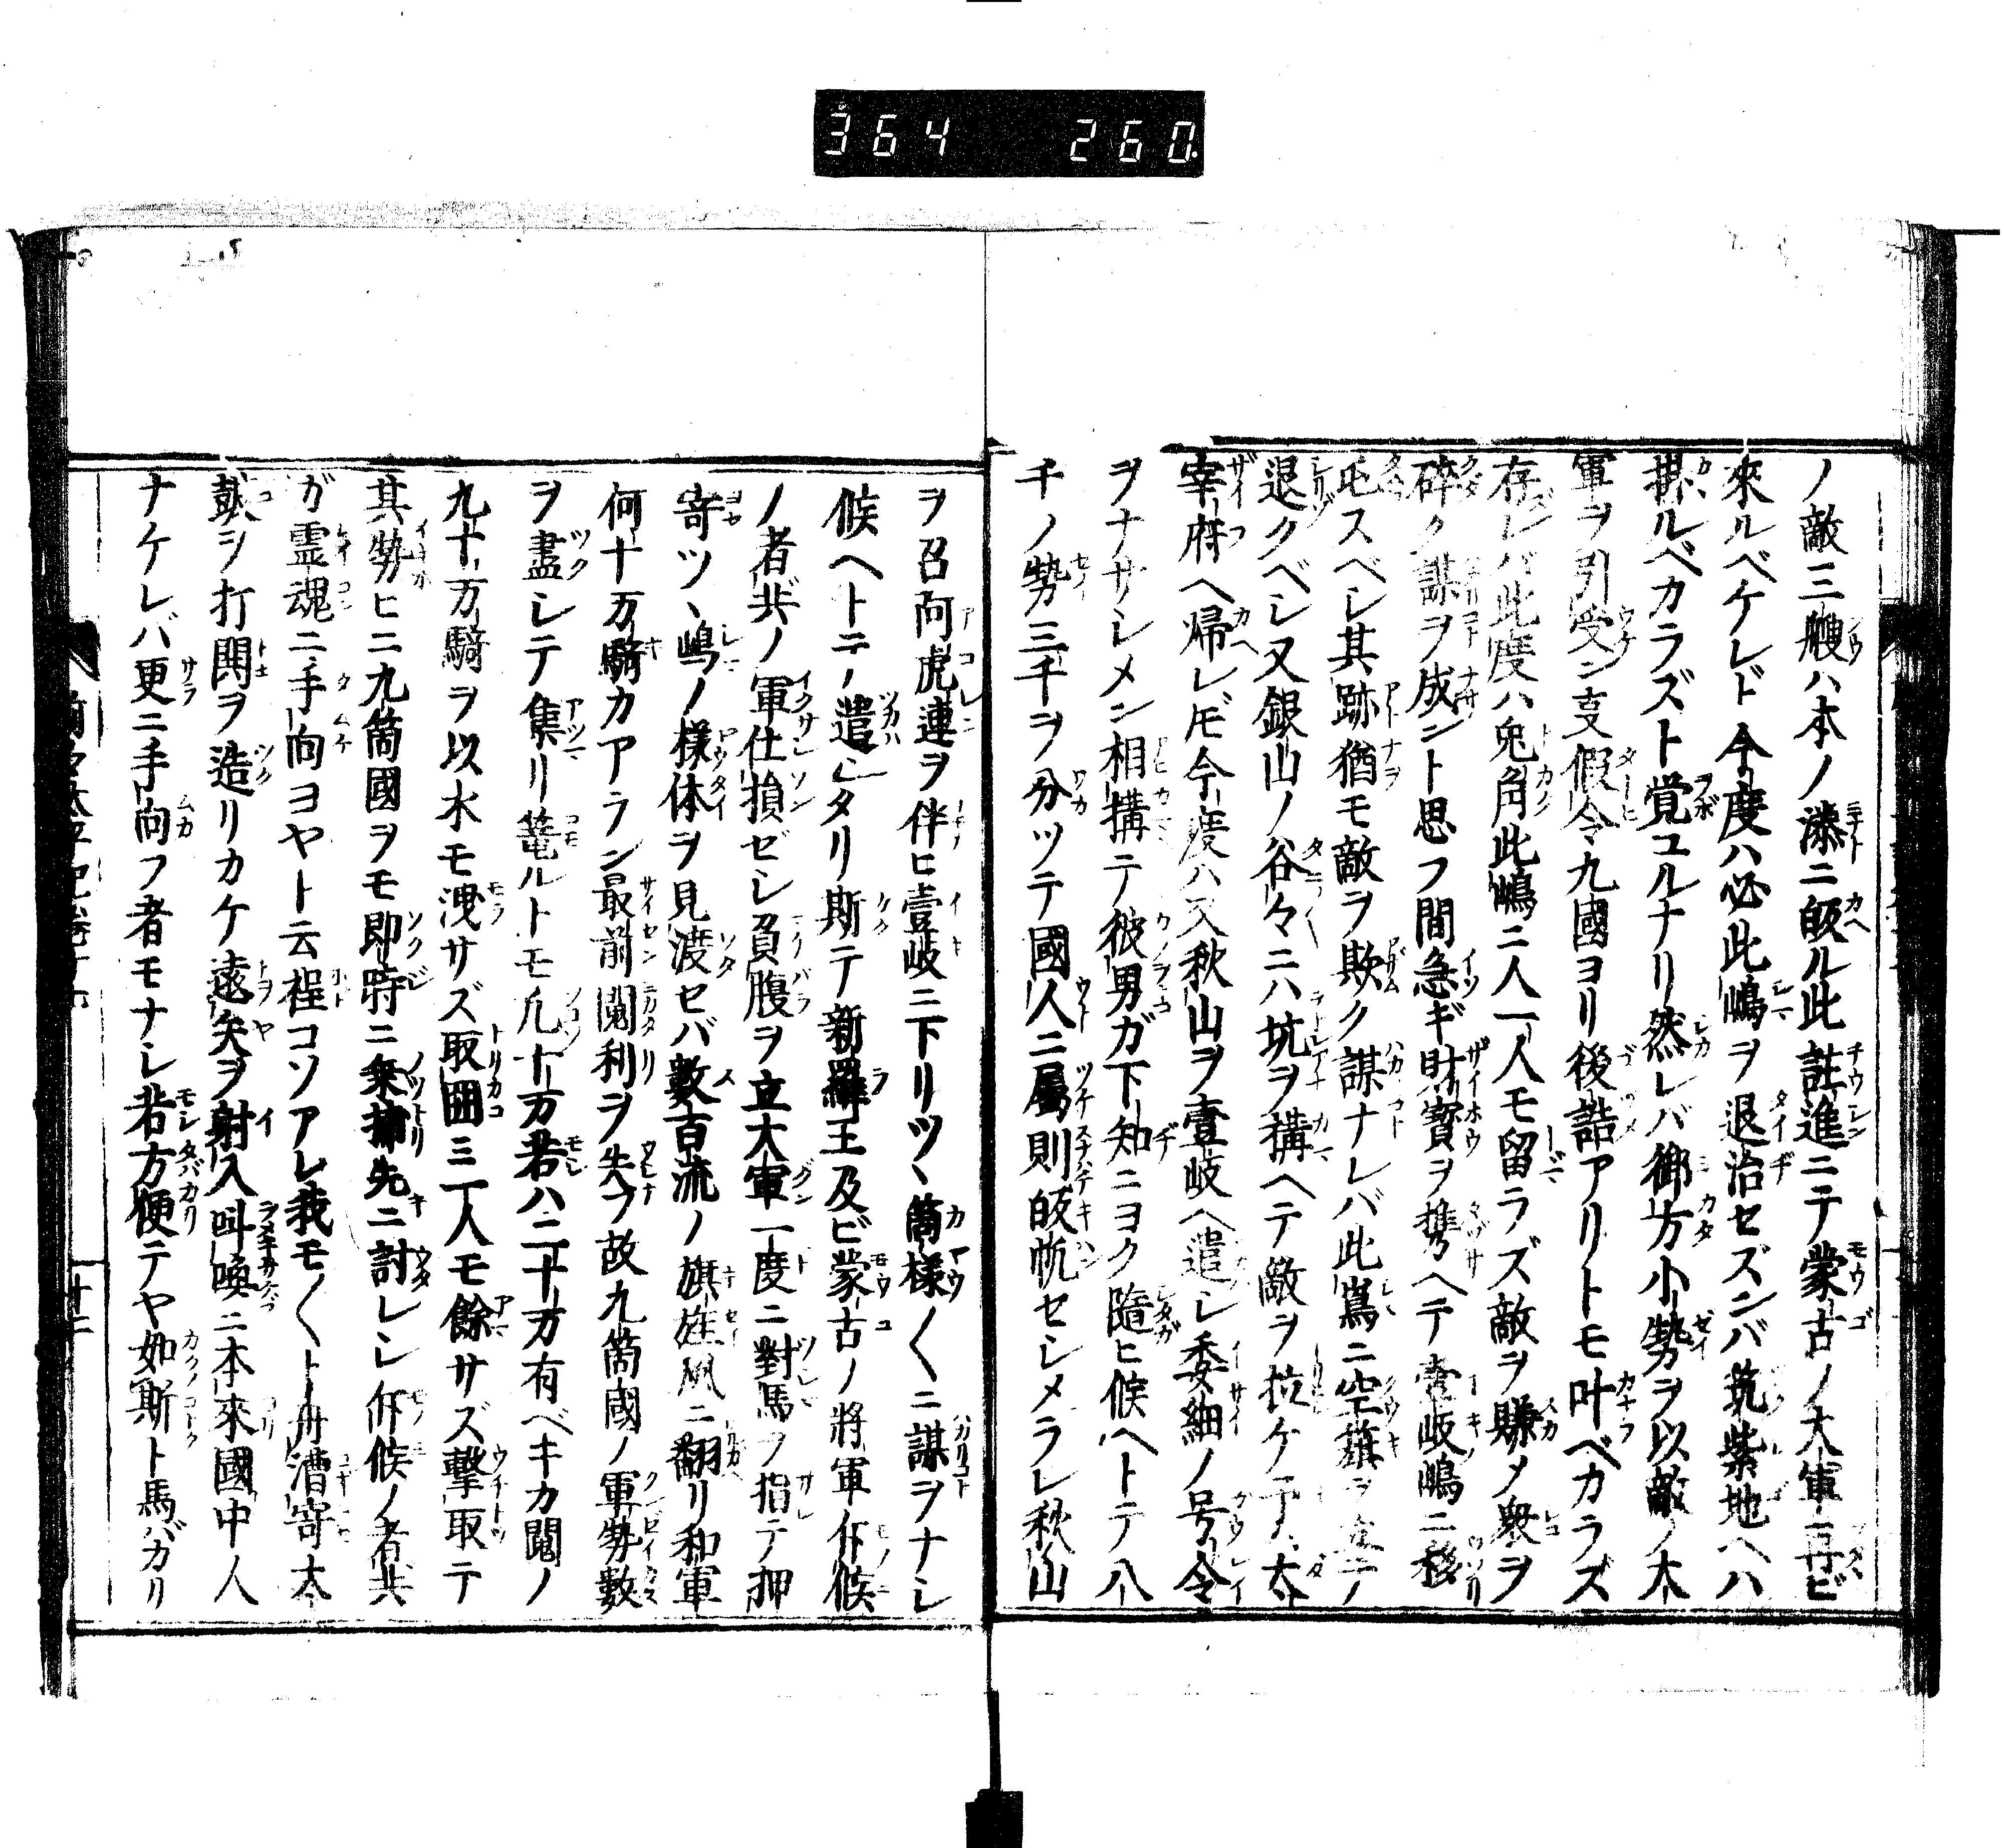 364 260.
ノ敵三艘ハ本ノ湊ニ皈ル此註進ニテ蒙古ノ大軍再ビ
來ルベケレド今度ハ必此嶋ヲ退治セズンバ筑紫地ヘハ
掛ルベカラズト覚ユルナリ然レバ御方小勢ヲ以敵ノ大
軍ヲ引受ン支假令九國ヨリ後詰アリトモ叶ベカラズ
存レバ此度ハ兎角此嶋ニ人一人モ留ラズ敵ヲ賺メ衆ヲ
碎ク謀ヲ成ント思フ間急ギ財寳ヲ携ヘテ壹岐嶋ニ移
スベレ其跡猶モ敵ヲ欺ク謀ナレバ此嶌ニ空籏ヲ立テ
退クベレ又銀山ノ谷々ニハ坑ヲ構ヘテ敵ヲ拉ケ太
宰府ヘ帰レ今度ハ又秋山ヲ壹岐ヘ遣レ委細ノ号令
ヲナサレメン相構テ彼男ガ下知ニヨク隨ヒ候ヘトテ八
千ノ勢三千ヲ分ツテ國人ニ屬則皈帆セレメラレ秋山
ヲ召向虎連ヲ伴ヒ壹岐ニ下リツヽ箇様〱ニ謀ヲナレ
候ヘトテノ遣レタリ斯テ新羅王及ビ蒙古ノ將軍仵候
ノ者共ノ軍仕損ゼレ負腹ヲ立大軍一度ニ對馬ヲ指テ押
寄ツヽ嶋ノ様体ヲ見渡セバ數百流ノ旗旌風ニ翻リ和軍
何十万騎カアラン最前閲利ヲ失フ故九箇國ノ軍勢數
ヲ盡レテ集リ篭ルトモ凢十万若ハ二十万有ベキカ閲ノ
九十万騎ヲ以水モ洩サズ取囲ミ一人モ餘サズ撃取テ
其勢ヒニ九箇國ヲモ即時ニ乗捕先ニ討レレ仵候ノ者共
ガ霊魂ニ手向ヨヤト云程コソアレ我モ〱ト舟漕寄太
皷ヲ打閧ヲ造リカケ遠矢ヲ射入叫喚ニ本來國中人
ナケレバ更ニ手向フ者モナレ若方便テヤ如斯ト馬バカリ
十二